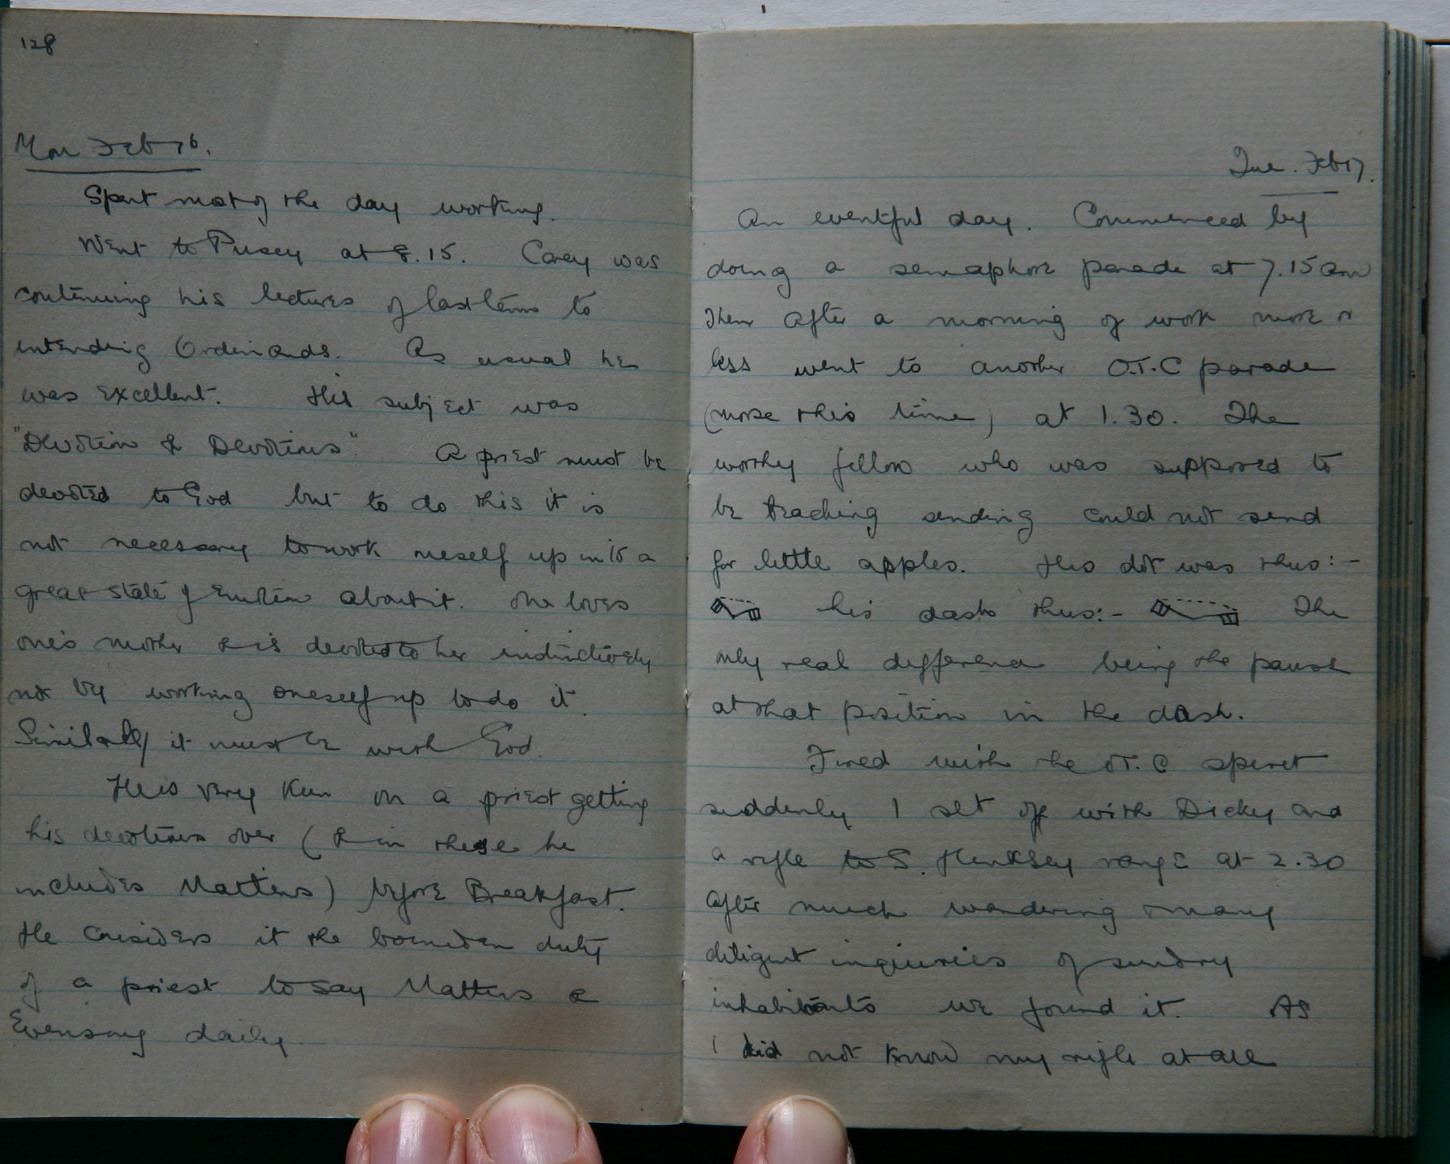 128
Mon Feb 16.
Spent most of the day working.
Went to Pusey at 8.15. Carey was
continuing his lectures of last term to
intending Ordinands. As usual he
was excellent. His subject was
"Devotion & Devotions". A priest must be
devoted to God but to do this it is
not necessary to work oneself up into a
great state of Emotion about it. One loves
one's mother & is devoted to her instinctively
not by working oneself up to do it.
Similarly it must be with God.
He is very keen on a priest getting
his devotions over (& in these he
includes Mattins) before Breakfast.
He considers it the bounden duty
of a priest to say Mattins &
Evensong daily.
Tue. Feb 17.
An eventful day. Commenced by
doing a semaphore parade at 7.15 am
Then after a morning of work more or
less went to another O.T.C parade
(morse this time) at 1.30. The
worthy fellow who was supposed to
be teaching sending could not send
for little apples. His dot was thus:-
his dash thus:- The
only real difference being the pause
at that position in the dash.
Fired with the O.T.C spirit
suddenly I set off with Dicky and
a rifle to S. Hinksey range at 2.30
After much wandering & many
diligent inquiries of sundry
inhabitants we found it. As
I did not know my rifle at all